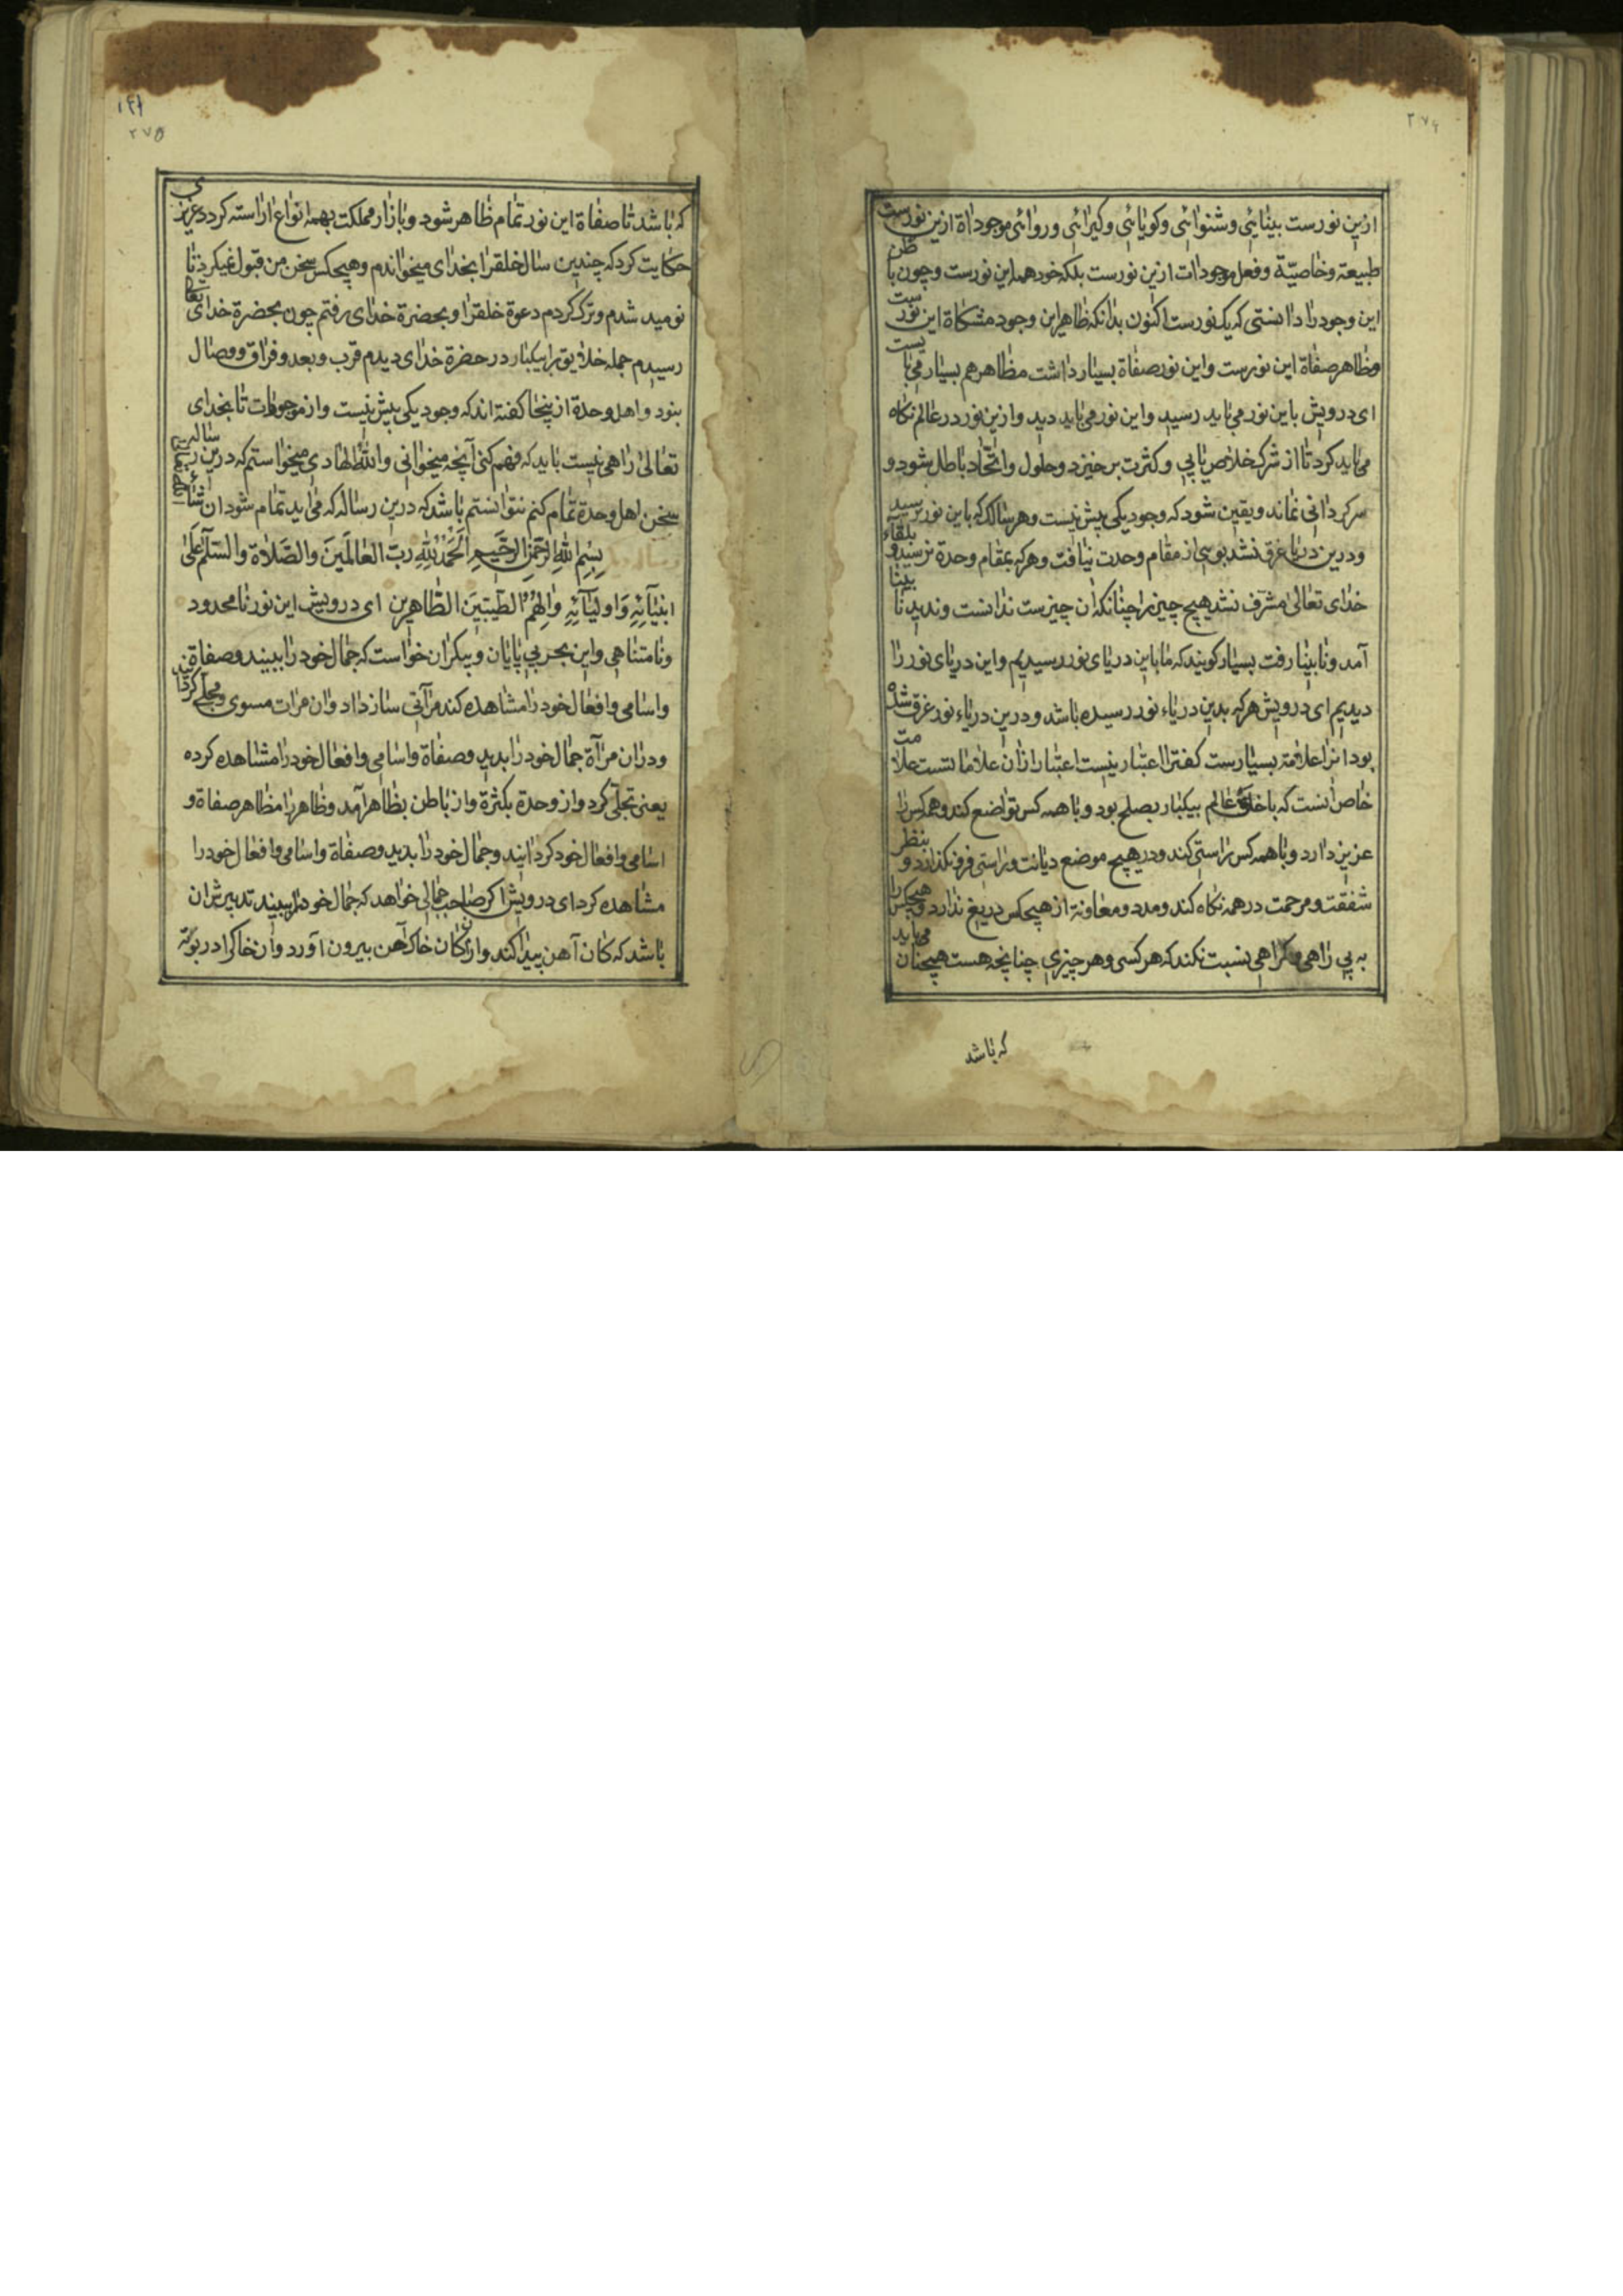 ۲۷۴
ازین نورست بینائی و شنوائی و کویائی و کیرائی و روائی موجوداة ازین نورست
طبیعة و خاصیّة و فعل موجودات ازین نورست بلکه خود همه این نورست و چون باطن
این وجود را دانستی که یک نورست اکنون بدانکه ظاهر این وجود مشکاة این نورست
و ظاهر صفاة این نورست و این نور صفاة بسیار داشت مظاهر هم بسیار می بایست
ای درویش باین نور می باید رسید و این نور می باید دید و ازین نور در عالم نکاه
می باید کرد تا از شرک خلاص یابی و کثرت برخیزد و حلول و اتّحاد باطل شود و
سرکردانی نماند و یقین شود که وجود یکی بیش نیست و هر سالک که باین نور نرسید
و درین دریا غرق نشد بوی از مقام وحدت نیافت و هر که بمقام وحدة نرسید و بلقاء
خدای تعالی مشرّف نشد هیچ چیز را چنانکه آن چیزست ندانست و ندید نابینا
آمد و نابینا رفت بسیار کویند که ما باین دریای نور رسیدیم و این دریای نور را
دیدیم ای درویش هر که بدین دریاء نور رسیده باشد و درین دریاء نور غرق شده
بود آنرا علامة بسیارست کفتن را اعتبار نیست اعتبار از آن علاماتست علامت
خاص آنست که با خلق عالم بیکبار بصلح بود و با همه کس تواضع کند و همه کس را
عزیز دارد و با همه کس راستی کند و در هیچ موضع دیانت و راستی فرو نکذارد و بنظر
شفقت و مرحمت در همه نکاه کند و مدد و معاونة از هیچکس دریغ ندارد و هیچکس را
به بی راهی و کمراهی نسبت نکند که هر کسی و هر چیزی چنانچه هست همچنان می باید
که باشد
۱۴۱
۲۷۵
که باشد تا صفاة این نور تمام ظاهر شود و بازار مملکت بهمه انواع آراسته کردد عزیزی
حکایت کرد که چندین سال خلق را بخدای میخواندم و هیچکس سخن من قبول نمیکرد تا
نومید شدم و ترک کردم دعوة خلق را و بحضرة خدای رفتم چون بحضرة خدای تعالی
رسیدم جمله خلایق را بیکبار در حضرة خدای دیدم قرب و بعد و فراق و وصال
نبود و اهل وحدة از پنجا کفته اند که وجود یکی بیش نیست و از موجودات تا بخدای
تعالی راهی نیست باید که فهم کنی آنچه میخوانی والله الهادی میخواستم که درین رساله
سخن اهل وحدة تمام کنم نتوانستم باشد که درین رساله که می آید تمام شود ان شاء الله
بِسْمِ اللهِ الرَّحْمنِ الرَّحِیمِ اَلْحَمْدُ لِلهِ رَبّ العَالَمِینَ والصَّلاَة والسّلَم عَلَی
اَنبیَآئِهِ وَاولیَآئِهِ وَآلِهِمُ الطَیّبِینَ الطَّاهِرِین ای درویش این نور نامحدود
و نامتناهی و این بحر بی پایان و بیکران خواست که جمال خود را ببیند و صفاة
و اسامی و افعال خود را مشاهده کند مرآتی ساز داد و آن مرات مسوی و مجلّی کردانید
و در آن مرآة جمال خود را بدید و صفاة و اسامی و افعال خود را مشاهده کرده
یعنی تجلّی کرد و از وحدة بکثرة و از باطن بظاهر آمد و ظاهر را مظاهر صفاة و
اسامی و افعال خود کردانید و جمال خود را بدید و صفاة و اسامی و افعال خود را
مشاهده کرد ای درویش اکر صاحب جمالی خواهد که جمال خود را ببیند تدبیرش آن
باشد که کان آهن پیدا کند و از آن کان خاک آهن بیرون آورد و آن خاک را در بوته